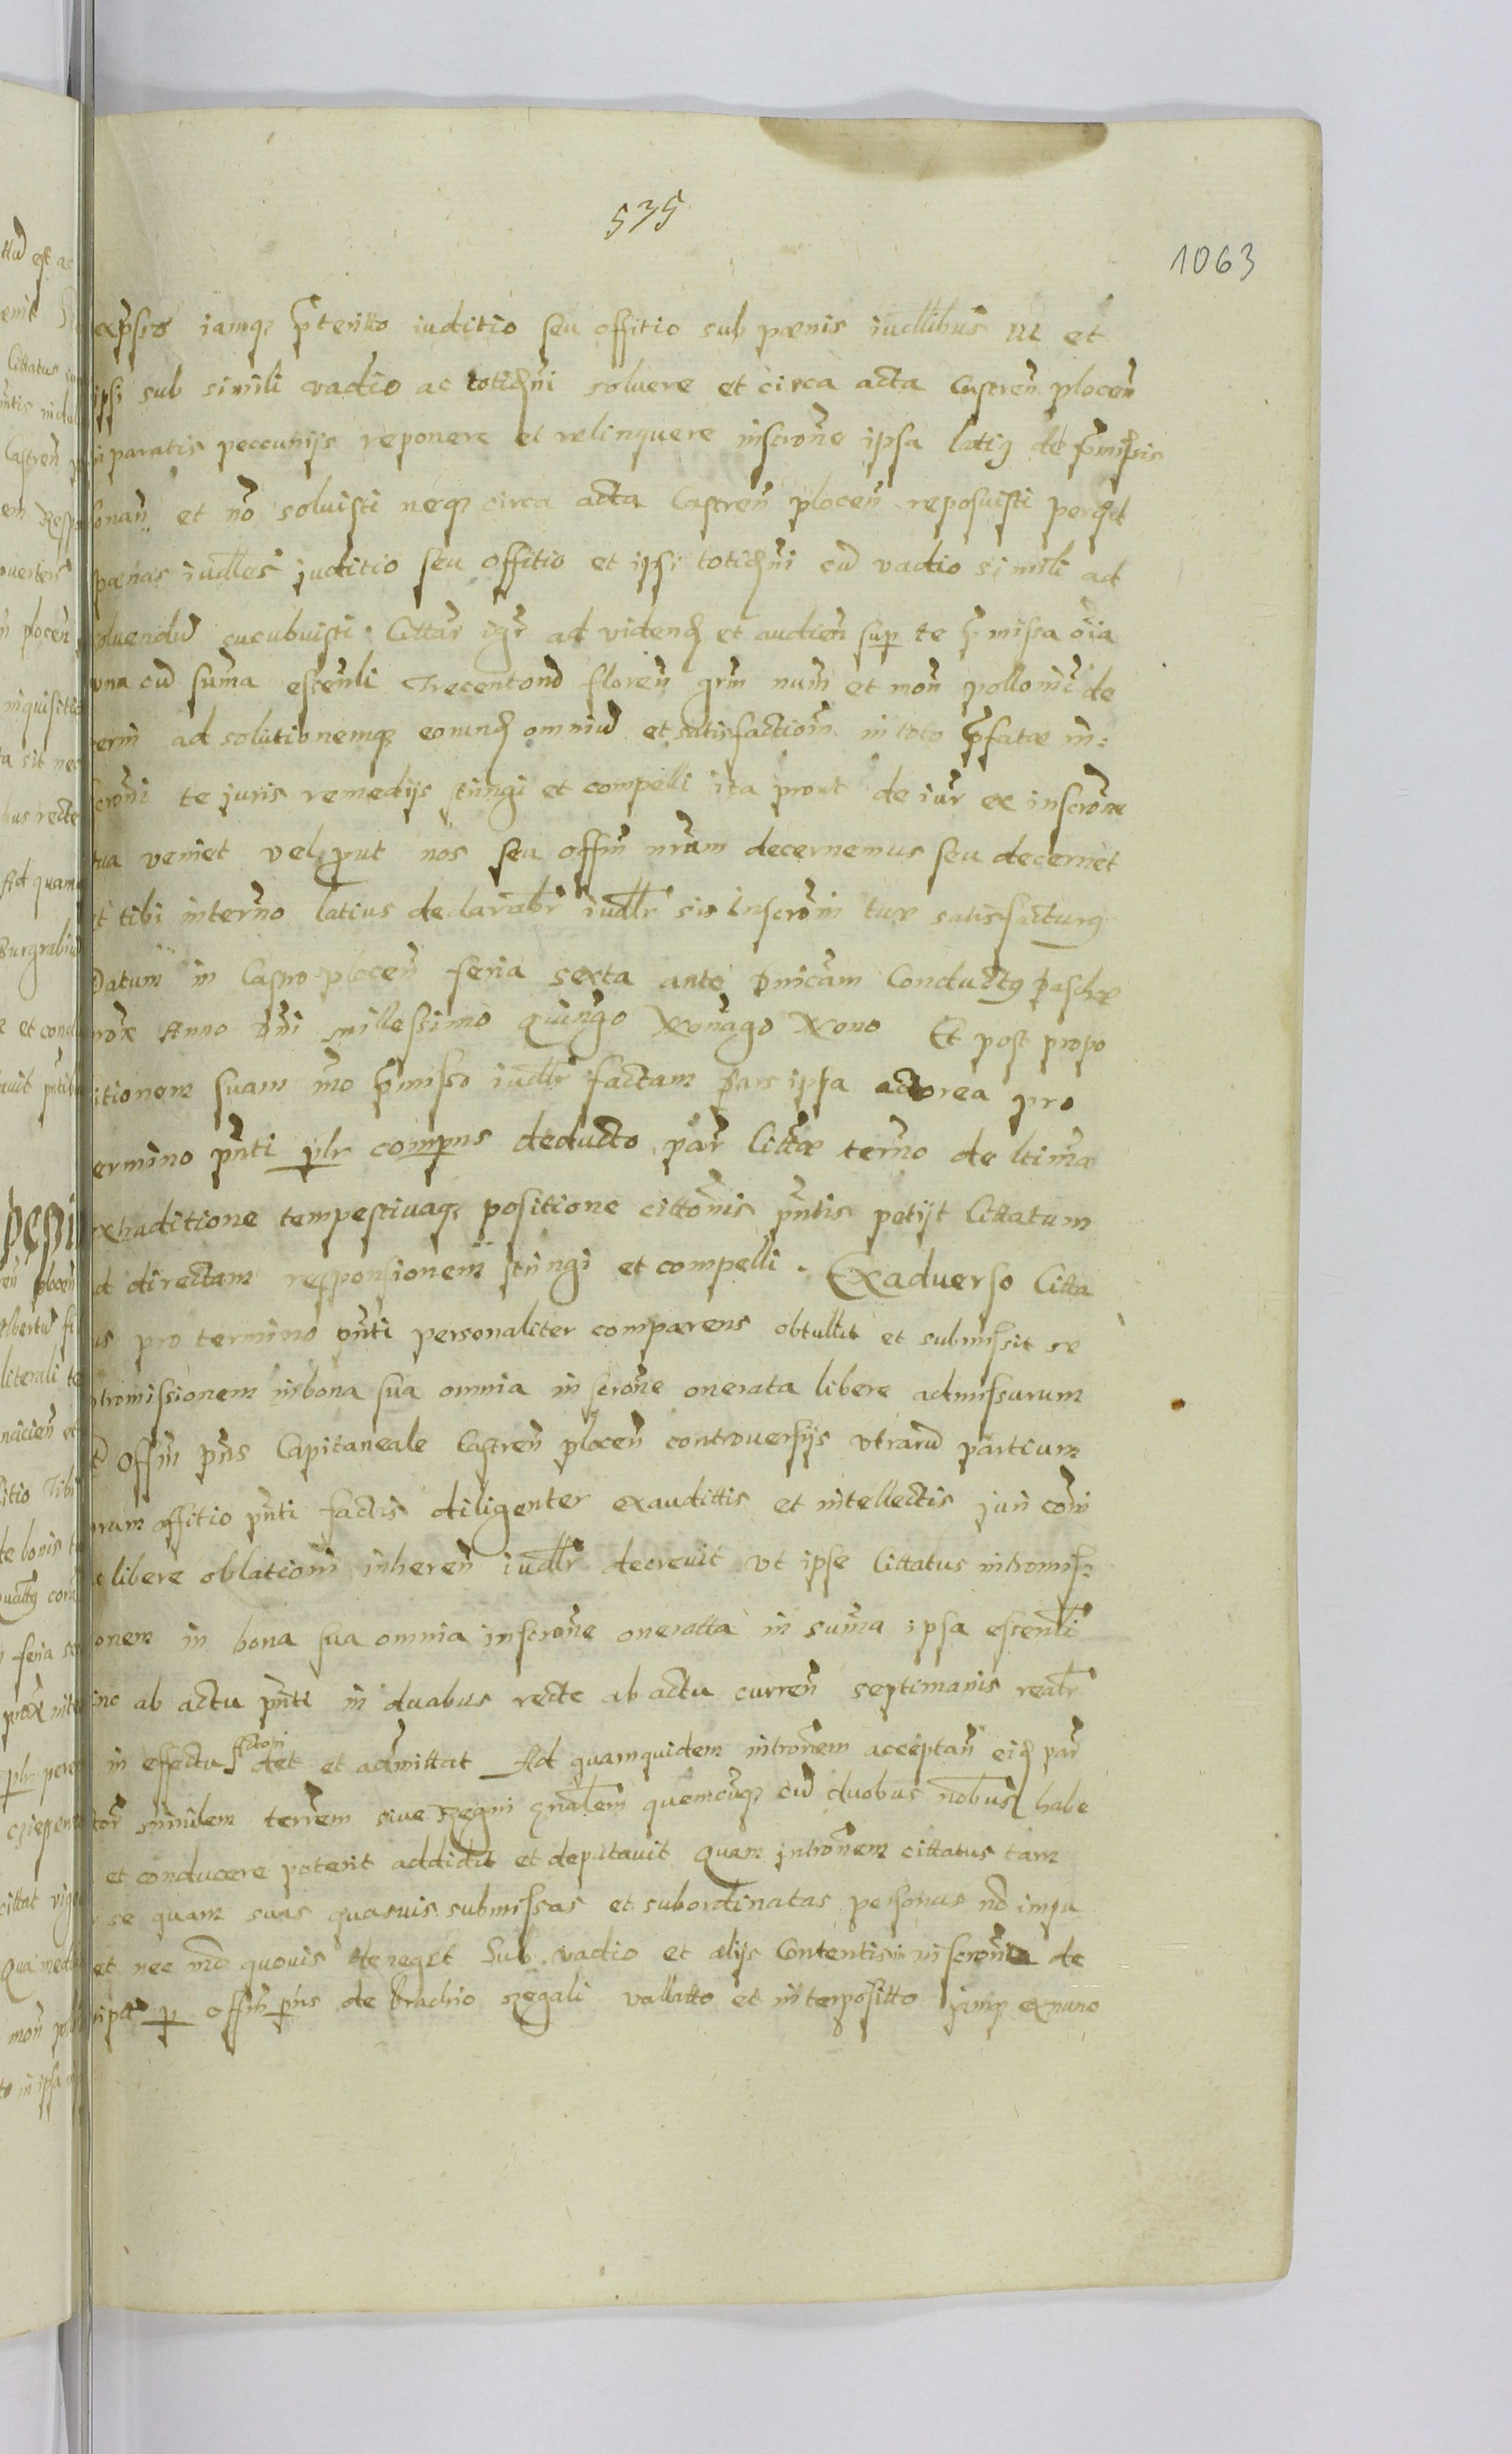 535
1063
expsso iamq pteritto iuditio seu offitio sub pœnis iudlibus III et
ipsi sub simili vadio ac totidni solvere et circa acta Castren plocen
paratis peccunijs reponere et relinquere inscrone ipsa latiq de pmissis
sonan et no solvisti neq circa acta Castren plocen reposuisti
pœnas iudles juditio seu offitio et ipsi totidni cu vadio simili ad
solvendu sucubuisti Cittar igr ad videnđ et audien sup te pmissa oia
vna cu suma essenli Trecentoru floren grm num et mon polloni de
ad solutionemq eorundđ omniu et satisfactiom in toto pfatæ in:
scroni te juris remedijs stringi et compelli ita prout de iur ex inscrone
tua veniet vel prut nos seu offm nrum decernemus seu decernet
et tibi interno latius declarabr iudlr sis inscroni tuæ satisfacturq
Datum in Castro plocen feria sexta ante Dnicam Conductq paschæ
prox Anno Dni millessimo Quingo Nonago Nono Et post propo
sitionem suam mo pmisso iudlr factam Pars ipsa actorea pro
termino pnti plr compns deducto par Cittæ terno de ltima
extraditione tempestivaq positione cittonis pntis petijt Cittatum
ad directam responsionem stringi et compelli. Exaduerso Citta
us pro termino pnti personaliter comparens obtullit et submissit se
intromissionem in bona sua omnia inscrone onerata libere admissurum
Offm pns Capitaneale Castren plocen controversijs vtraru partium
coram offitio pnti factis diligenter exaudittis et intellectis juri comi
ac libere oblationi inheren iudlr decrevit vt ipse Cittatus intromis:
sionem in bona sua omnia inscrone oneratta in suma ipsa essenli
hinc ab actu pnti in duabus recte ab actu curren septimanis realr
in effectu Actori det et admittat Ad quamquidem intronem acceptan eiđ par
actor terrem sive Regni gnalem quemcuq cu duobus nobus habe
et conducere poterit addidit et deputavit Quam intronem cittatus tam
per se quam suas quasvis submissas et subordinatas personas no impu
et nec mo quovis deneget Sub vadio et alijs Contentis in inscrone de
p offm pns de brachio Regali vallatto et interpositto jamq exnunc